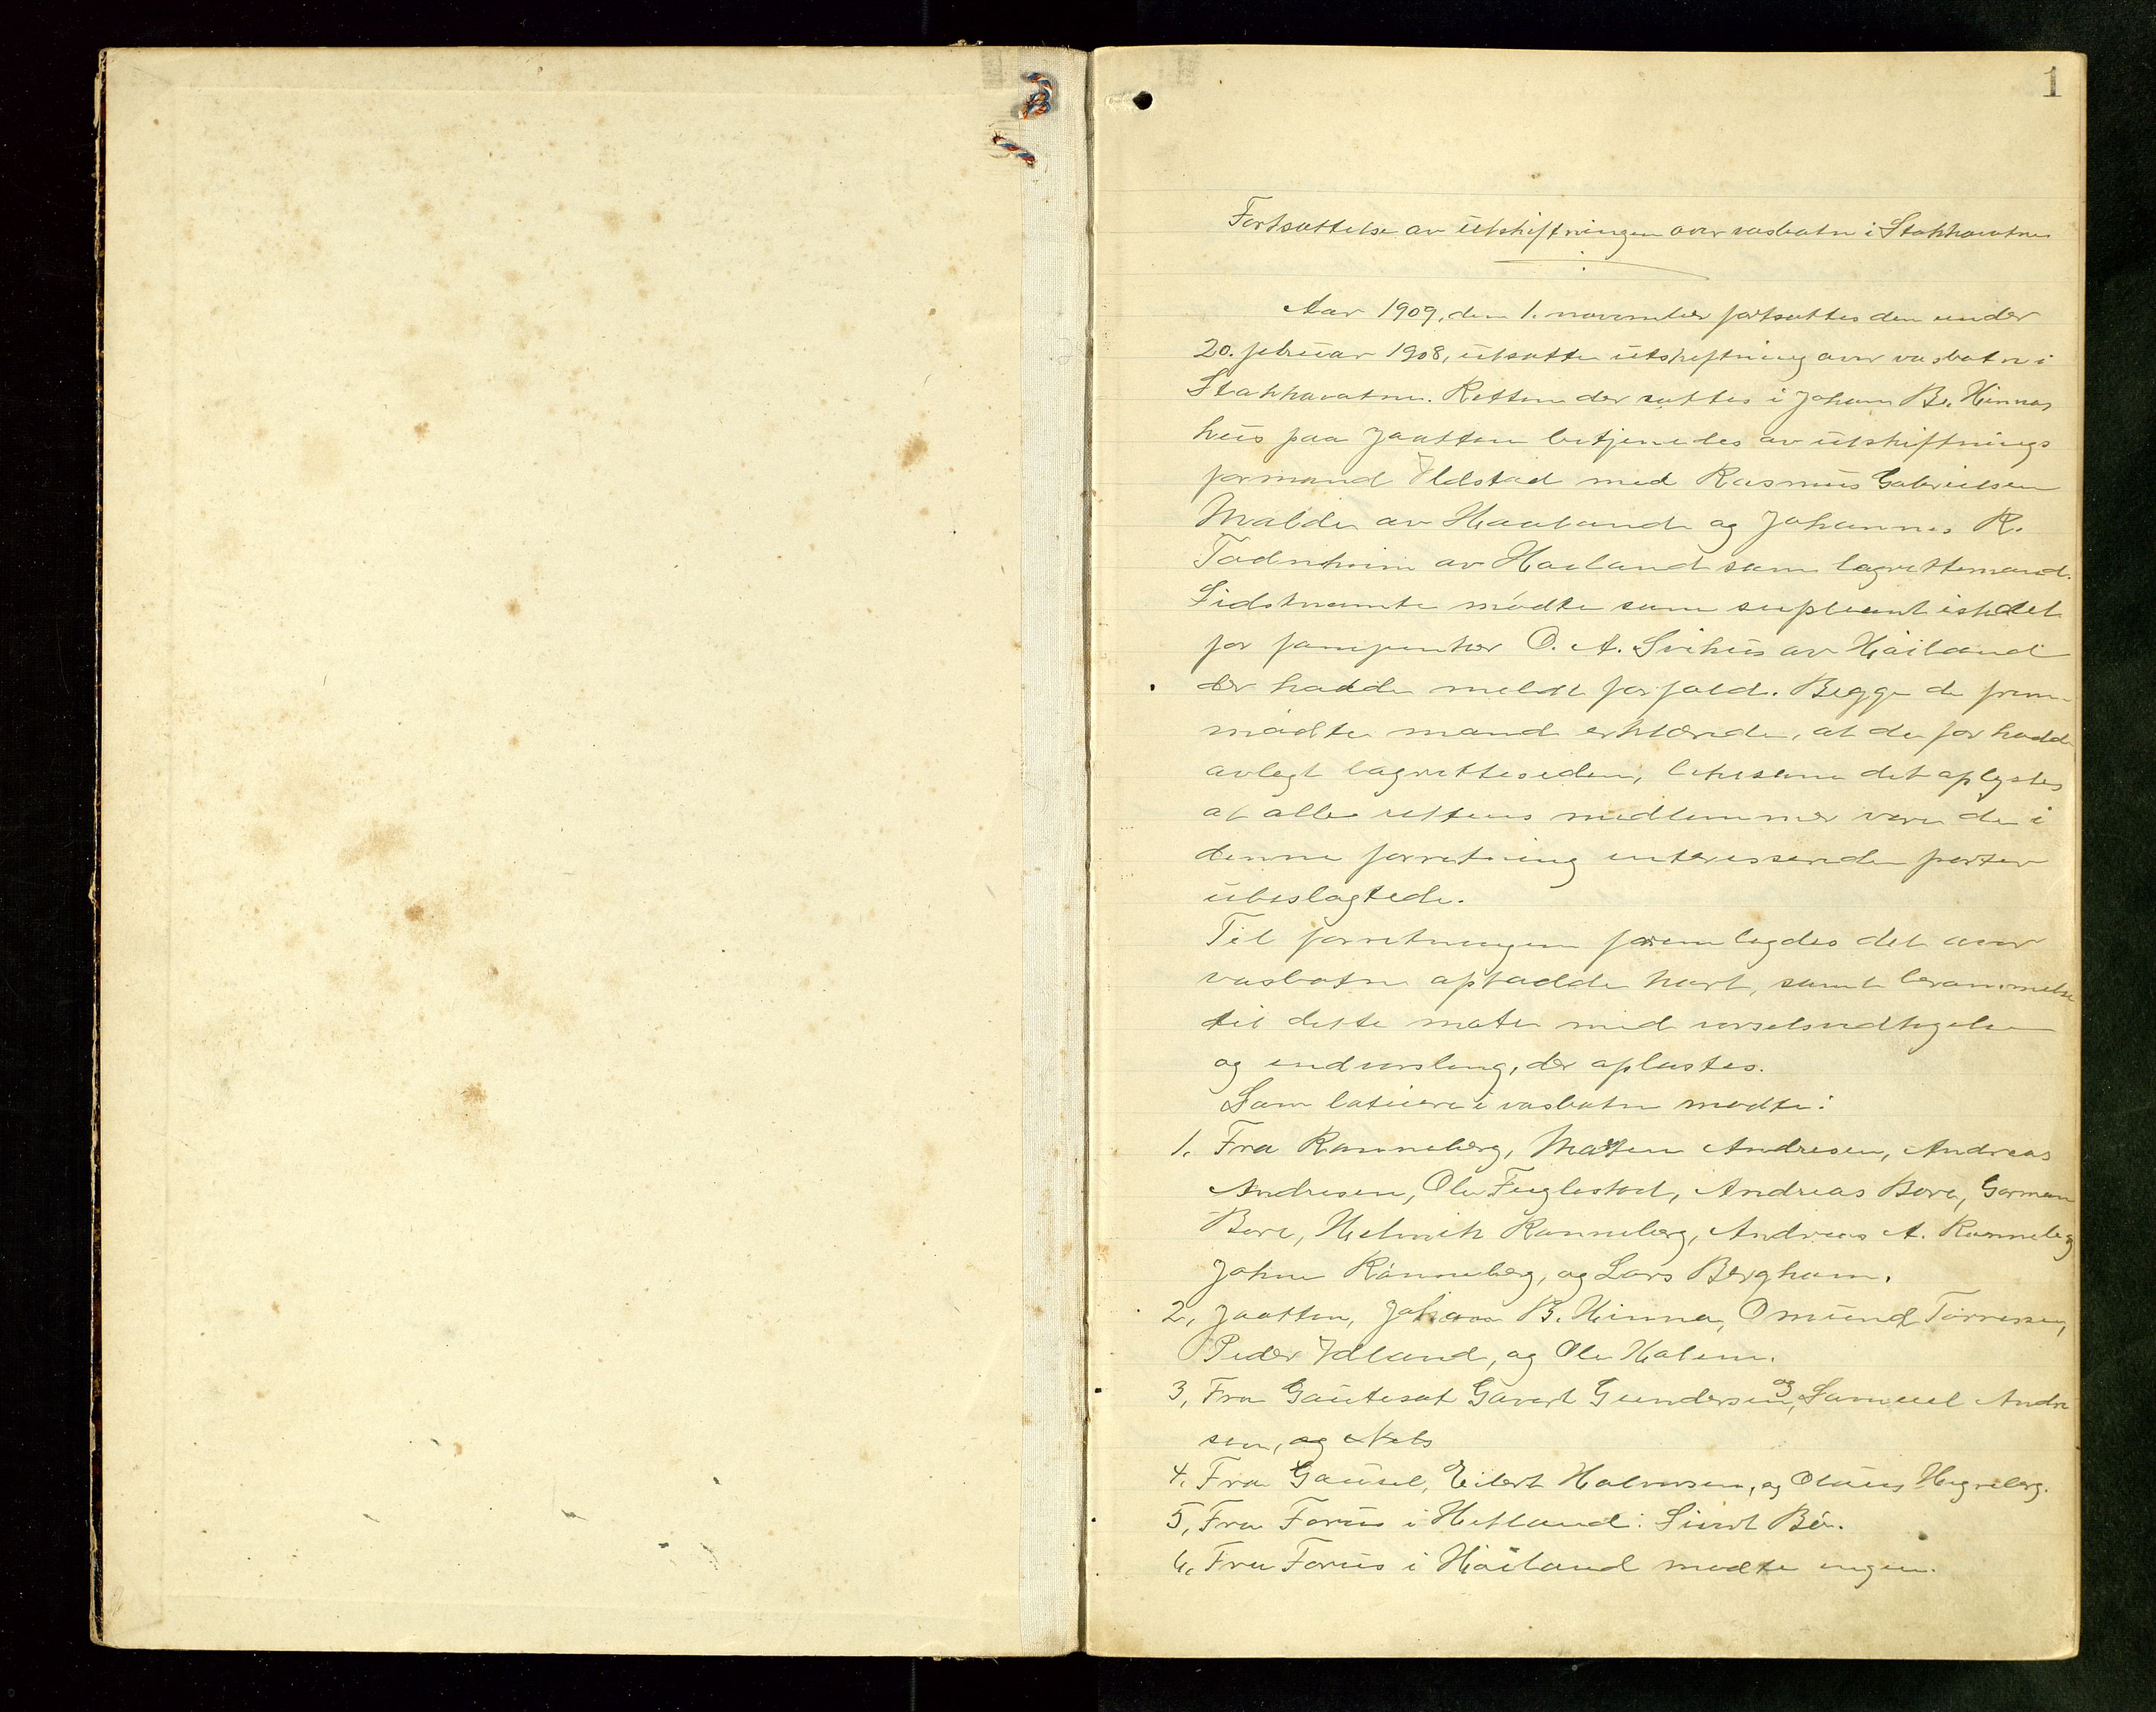 1
Fortsættelse av utskiftningen over vasbotn i Stokkavatne
Aar 1909, den 1. november fortsattes den under
20. februar 1908, utsatte utskiftning over vasbotn i
Stokkavatne. Retten der sattes i Johan B. Hinnas
hus paa Jaatten betjenedes av utskiftnings
formand Ildstad med Rasmus Gabrielsen
Malde av Haaland og Johannes R.
Todnheim av Høiland som lagrettemænd.
Sidstnævnte mødte som supleant istedet
for jamgunher O. A. Svihus av Høiland
der hadde meldt forfald. Begge de frem-
mødte mænd erklærede, at de før hadde
avlagt lagretteseden, likesom det oplystes
at alle rettens medlemmer vare de i
denne forretning interesserede parter
ubeslagtede.
Til forretningen fremlagdes det over
vasbotn optadde kart, samt berammelse
til dette møte med varselsudtagelse
og endvarsling, der oplæstes.
Som lotseiere i vasbotn mødte:
1. Fra Ranneberg, Morten Andresen, Andreas
Andresen, Ole Fuglestad, Andreas Bore, Gorman
Bore, Helmik Ranneberg, Andreas A. Ranneberg
Johne Ranneberg, og Lars Bergham.
2, Jaatten, Johan B. Hinna, Omund Torresen,
Peder Idland, og Ole Holem.
3, Fra Gautesat Gavert Gundersen, og Samuel Andre
sen, og Nels
4. Fra Gausel, Eilert Halvorsen, og Olaus Hegreberg.
5, Fra Forus i Hetland: Sivert Bø.
6, Fra Forus i Høiland mødte ingen.